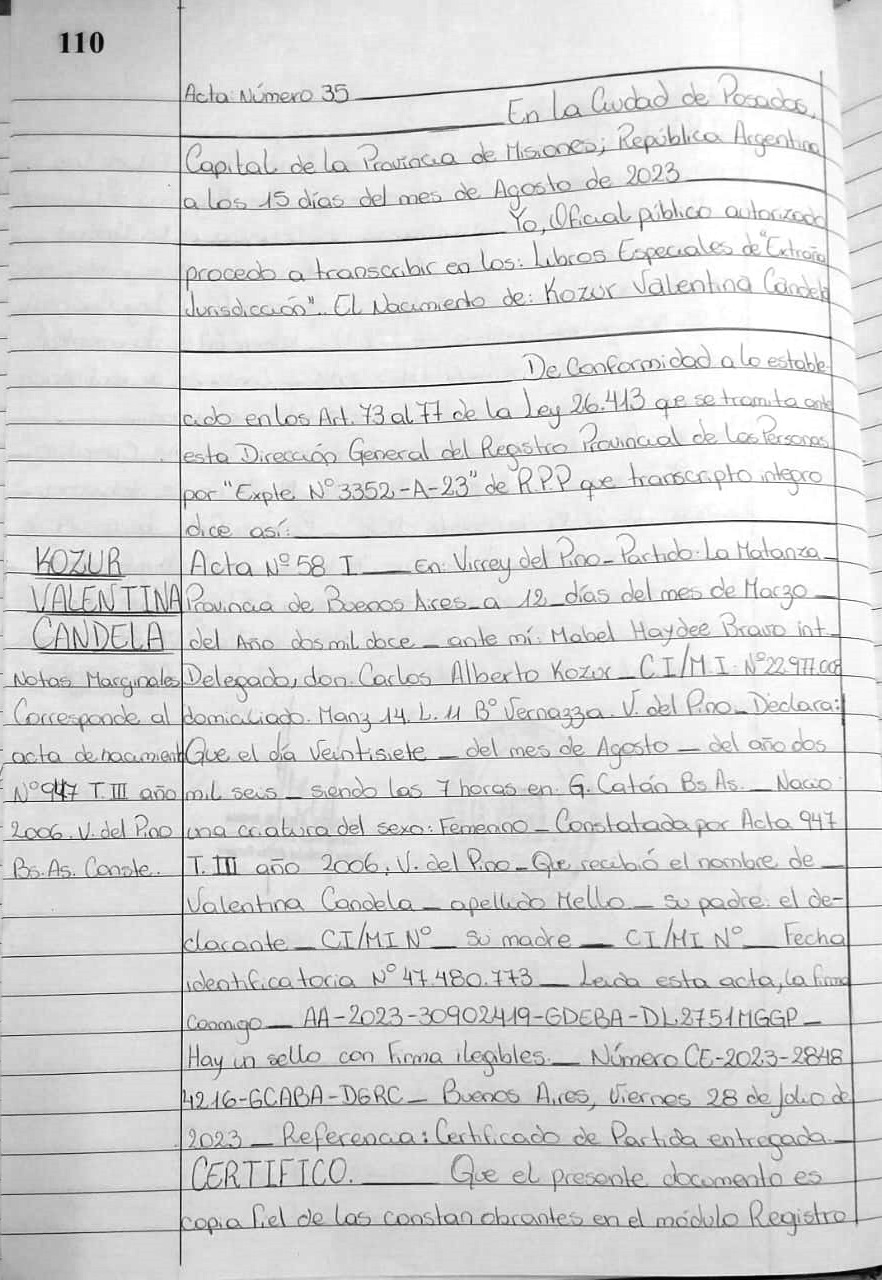 110
Acta: Número 35
En la Ciudad de Posadas,
Capital de la Provincia de Misiones; República Argentina
a los 15 días del mes de Agosto de 2023
Yo, Oficial público autorizado
procedo a transcribir en los: Libros Especiales de "Extraña
Jurisdicción". El Nacimiento de: Kozur Valentina Candela
De Conformidad a lo estable
cido en los Art. 73 al 77 de la Ley 26.413 qe se tramita ante
esta Dirección General del Registro Provincial de Las Personas
por "Expte. Nº 3352-A-23" de R.P.P que transcripto integro
dice así:
KOZUR
VALENTINA
CANDELA
Notas Marginales
Corresponde al
acta de nacimient
Nº 947 T. III año
2006. V. del Pino
Bs. As. Conste.
Acta Nº 58 I — En: Virrey del Pino - Partido: La Matanza
Provincia de Buenos Aires - a 12 días del mes de Marzo
del Año dos mil doce - ante mí: Mabel Haydee Bravo int
Delegado, don: Carlos Alberto Kozur - CI/M.I. Nº 22.977.008
domiciliado. Manz 14. L. 11 Bº Vernazza. V. del Pino - Declara:
Que el día Veintisiete - del mes de Agosto - del año dos
mil seis - siendo las 7 horas en: G. Catán Bs As. - Nacio
una criatura del sexo: Femenino - Constatada por Acta 947
T. III año 2006. V. del Pino - Que recibió el nombre de
Valentina Candela - apellido Mello - su padre: el de-
clarante - CI/MI Nº - su madre - CI/MI Nº - Fecha
identificatoria Nº 47.480.773 - Leída esta acta, la firma
Conmigo - AA-2023-30902419-GDEBA-DL2751MGGP -
Hay un sello con firma ilegibles. - Número CE-2023-2848
4216-GCABA-DGRC - Buenos Aires, Viernes 28 de Julio de
2023 - Referencia: Certificado de Partida entregada. -
CERTIFICO. — Que el presente documento es
copia fiel de las constan obrantes en el módulo Registro